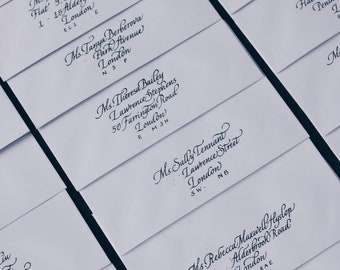 Flat
1 - 15 Alder
EC1 E
Ms. Tanya Berberova
Park Avenue
London
N 3 P
Ms. Theresa Bailey
Lawrence Stephens
50 Farrington Road
London
E M3H
Ms. Sally Tennant
Lawrence Street
London
SW. NB
Ms. Rebecca Maxwell Hyslop
Alderbrook Road
London